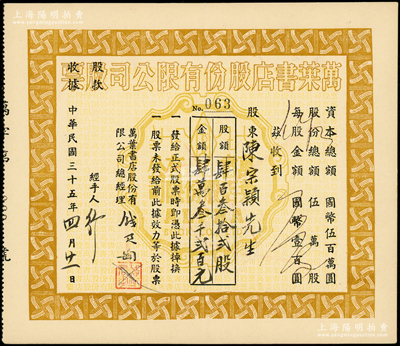 萬葉書店股份有限公司
股款收據
No. 063
資本總額 國幣伍百萬圓
股份總額 伍萬股
每股金額 國幣壹百圓
茲收到
股東陳宗穎先生
股額 肆百叁拾弍股
金額 肆萬叁千弍百元
一 發給正式股票時即憑此據掉換
一 股票未發給前此據效力等於股票
萬葉書店股份有限公司總經理
經手人
中華民國三十五年四月廿一日
上海陽明拍賣